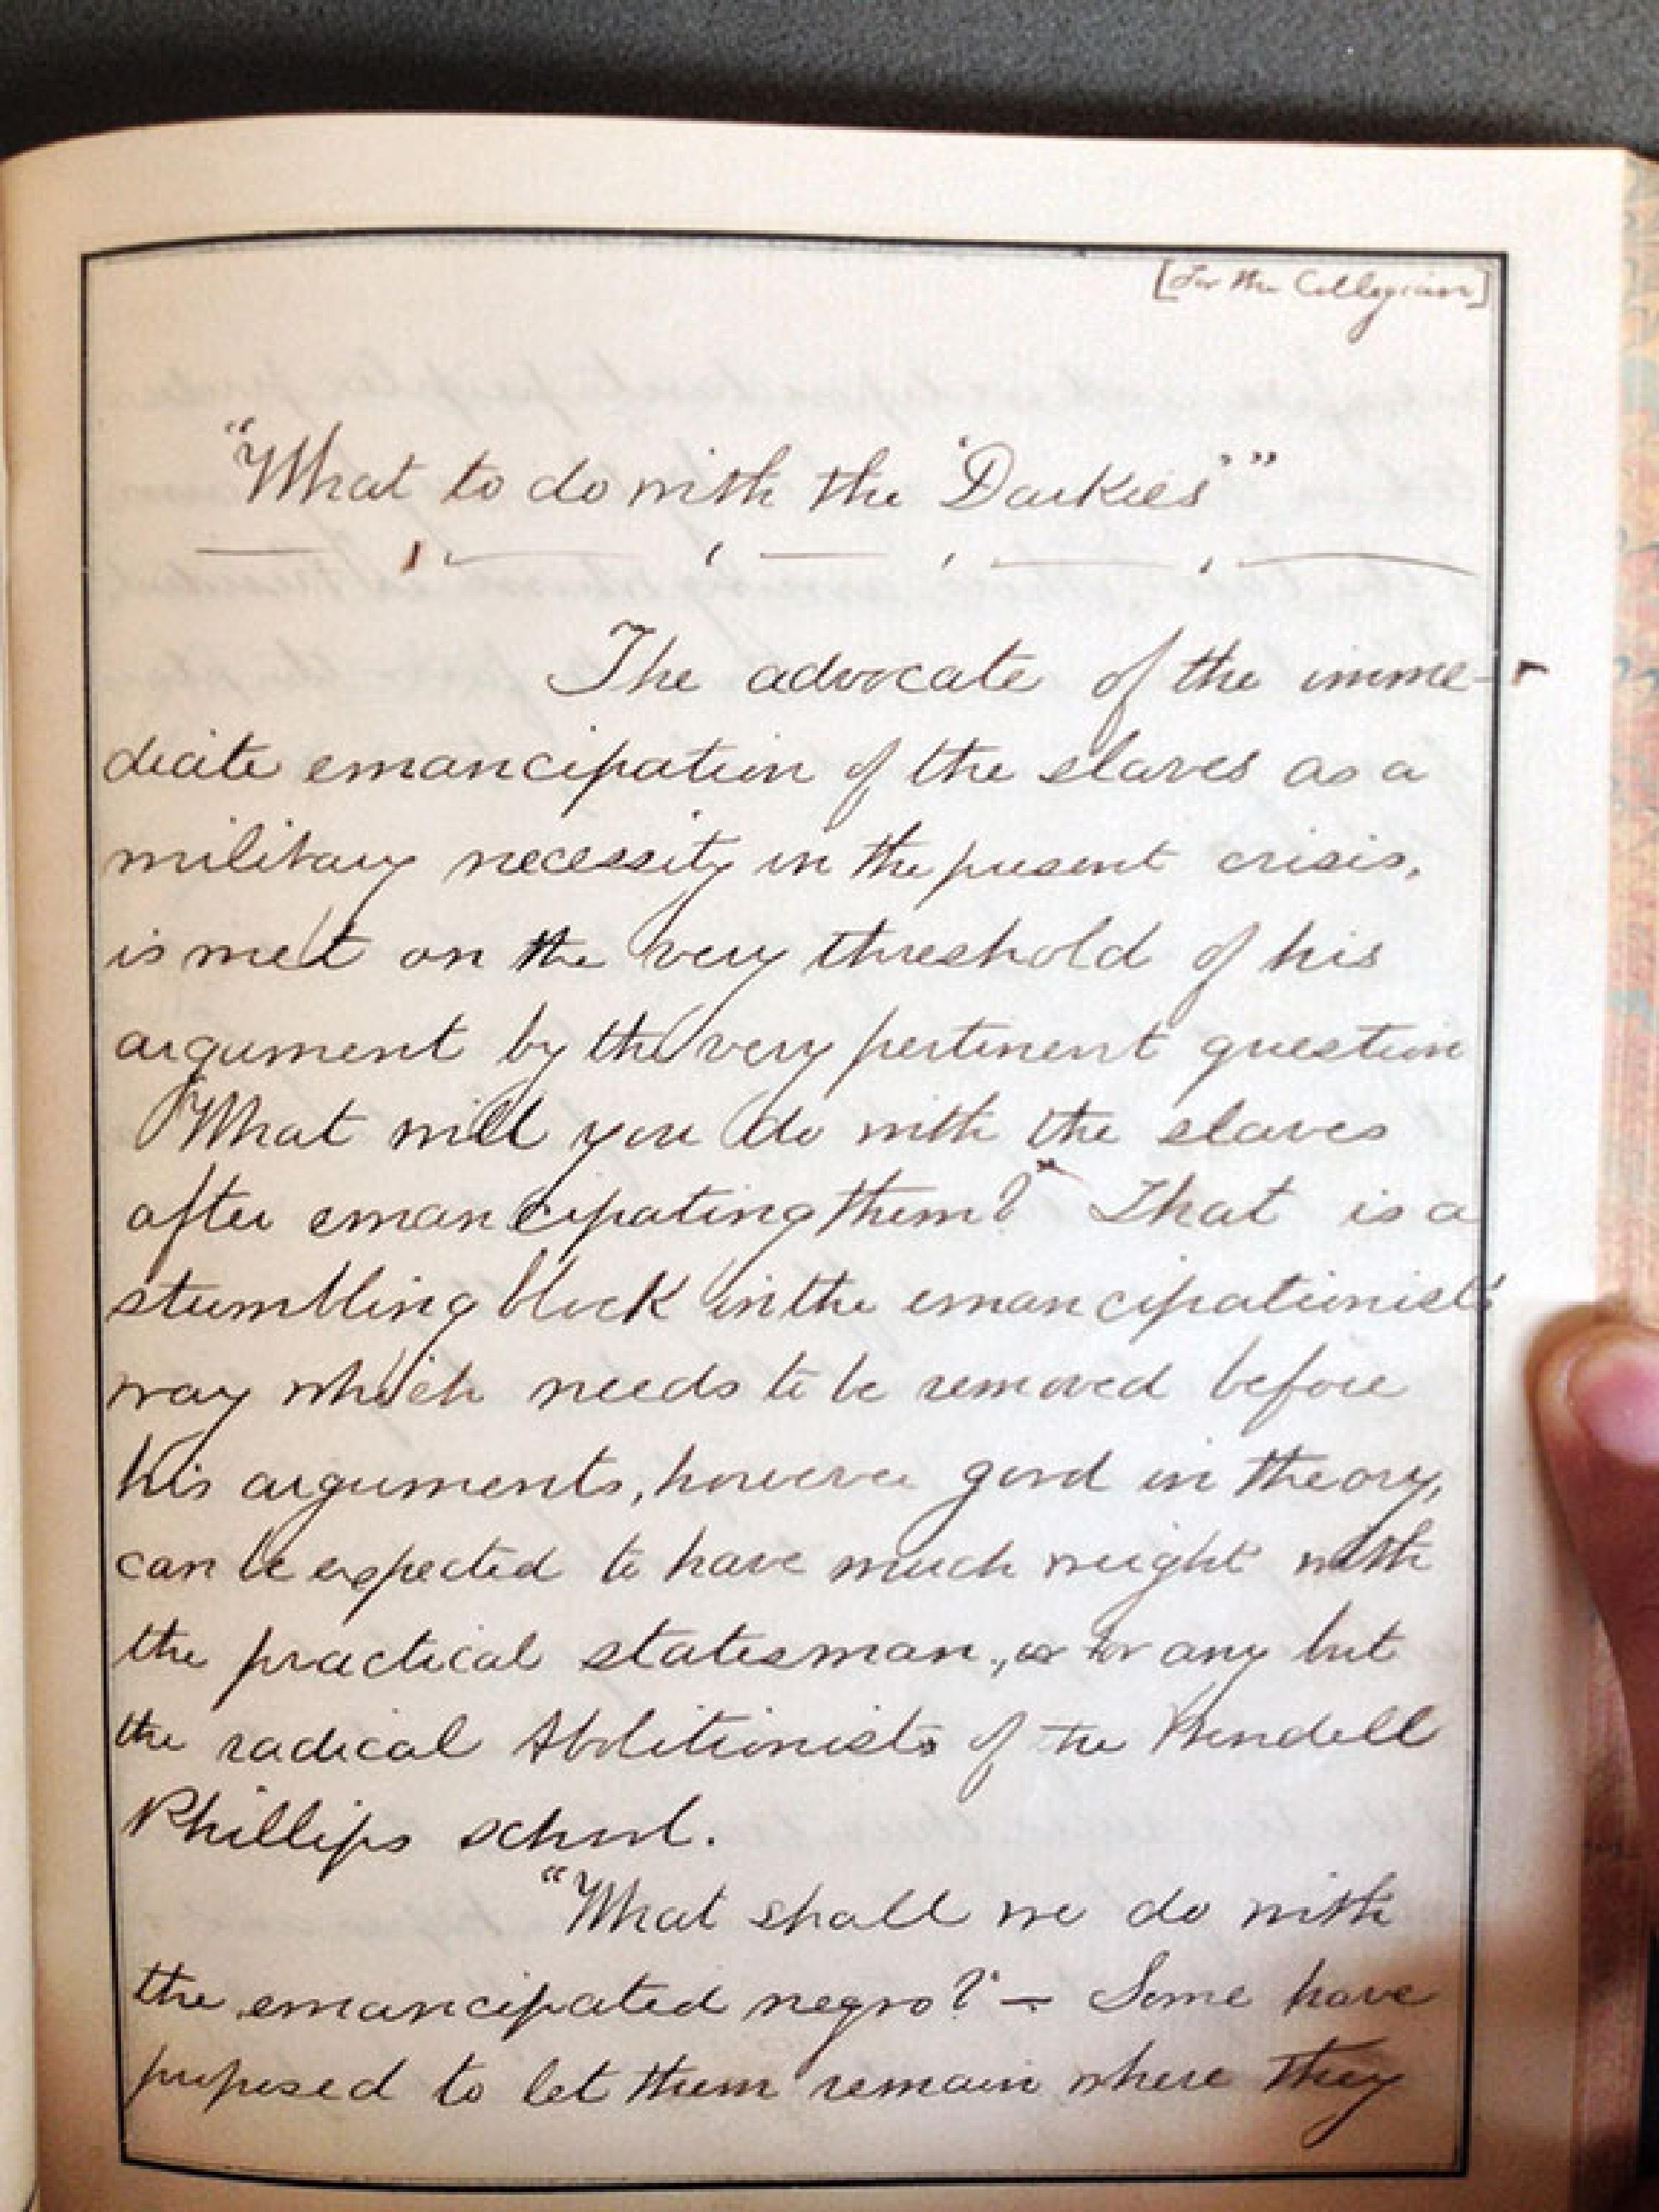 [For the Collegian]
"What to do with the 'Darkies'"
The advocate of the imme-
diate emancipation of the slaves as a
military necessity in the present crisis,
is met on the very threshold of his
argument by the very pertinent question
"What will you do with the slaves
after emancipating them?" That is a
stumbling block in the emancipationists'
way which needs to be removed before
his arguments, however good in theory,
can be expected to have much weight with
the practical statesman, or any but
the radical Abolitionists of the Wendell
Phillips school.
"What shall we do with
the emancipated negro?" — Some have
proposed to let them remain where they